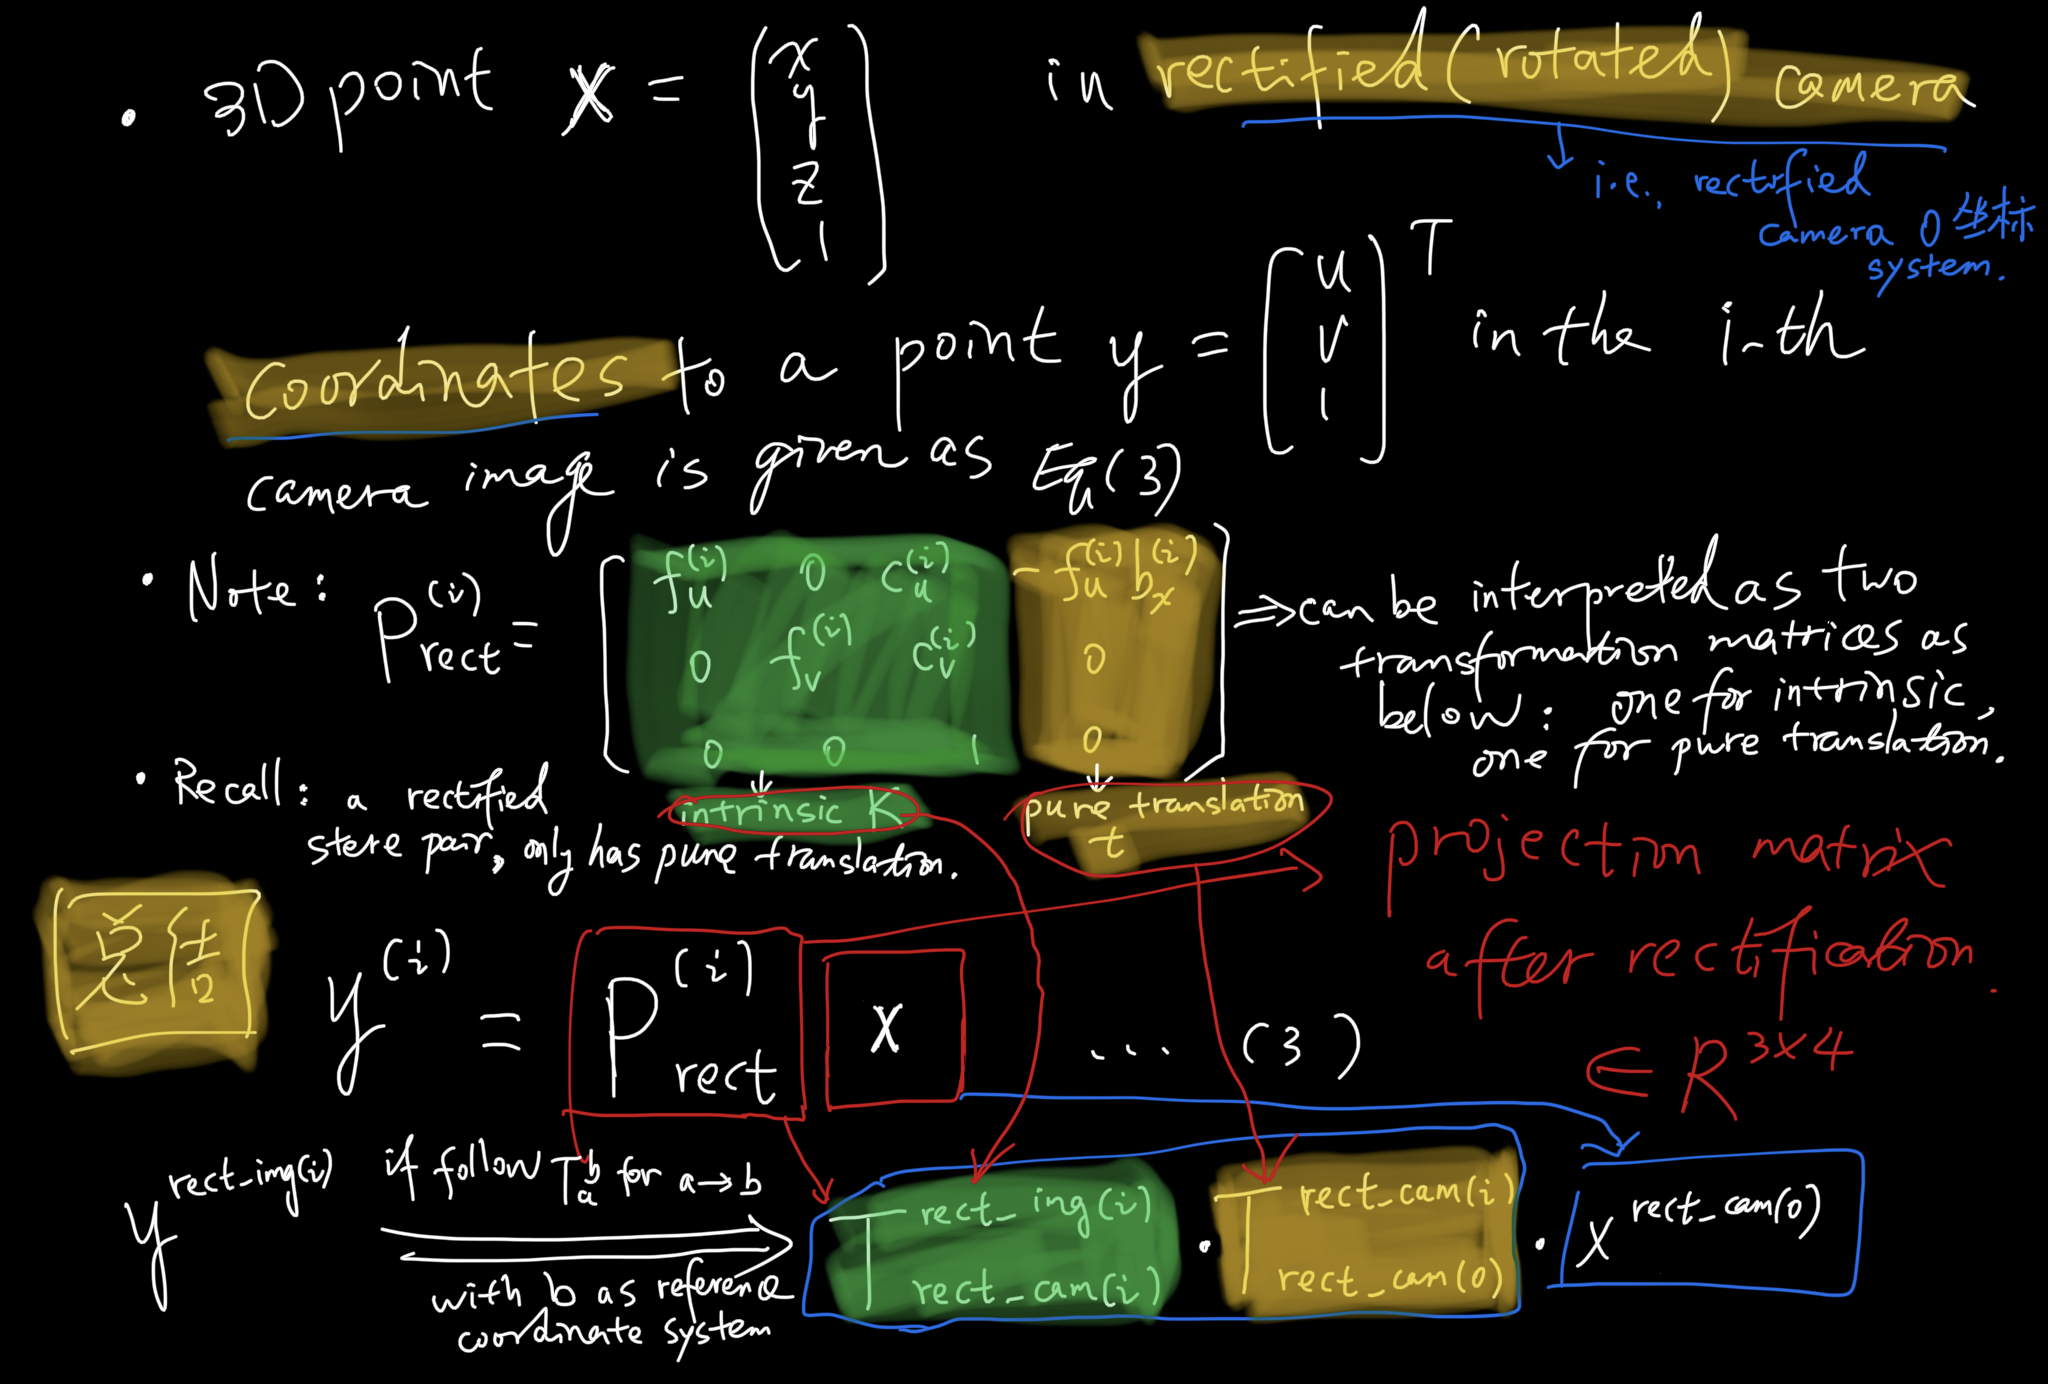 • 3D point X = (x y z 1) in rectified (rotated) camera
→ i.e., rectified
camera 0 坐标
system.
coordinates to a point y = [u v 1]^T in the i-th
camera image is given as Eq(3)
• Note: P_rect^(i) = [ f_u^(i) 0 c_u^(i) -f_u^(i) b_x^(i)
0 f_v^(i) c_v^(i) 0
0 0 1 0 ]
⇒ can be interpreted as two
transformation matrices as
below: one for intrinsic,
one for pure translation.
intrinsic K
pure translation
t
• Recall: a rectified
stere pair, only has pure translation.
projection matrix
after rectification.
∈ R^3x4
y^(i) = P_rect^(i) X ... (3)
y^rect_img(i)
if follow T_a^b for a→b
with b as reference
coordinate system
T_rect_cam(i)^rect_img(i) · T_rect_cam(0)^rect_cam(i) · X^rect_cam(0)